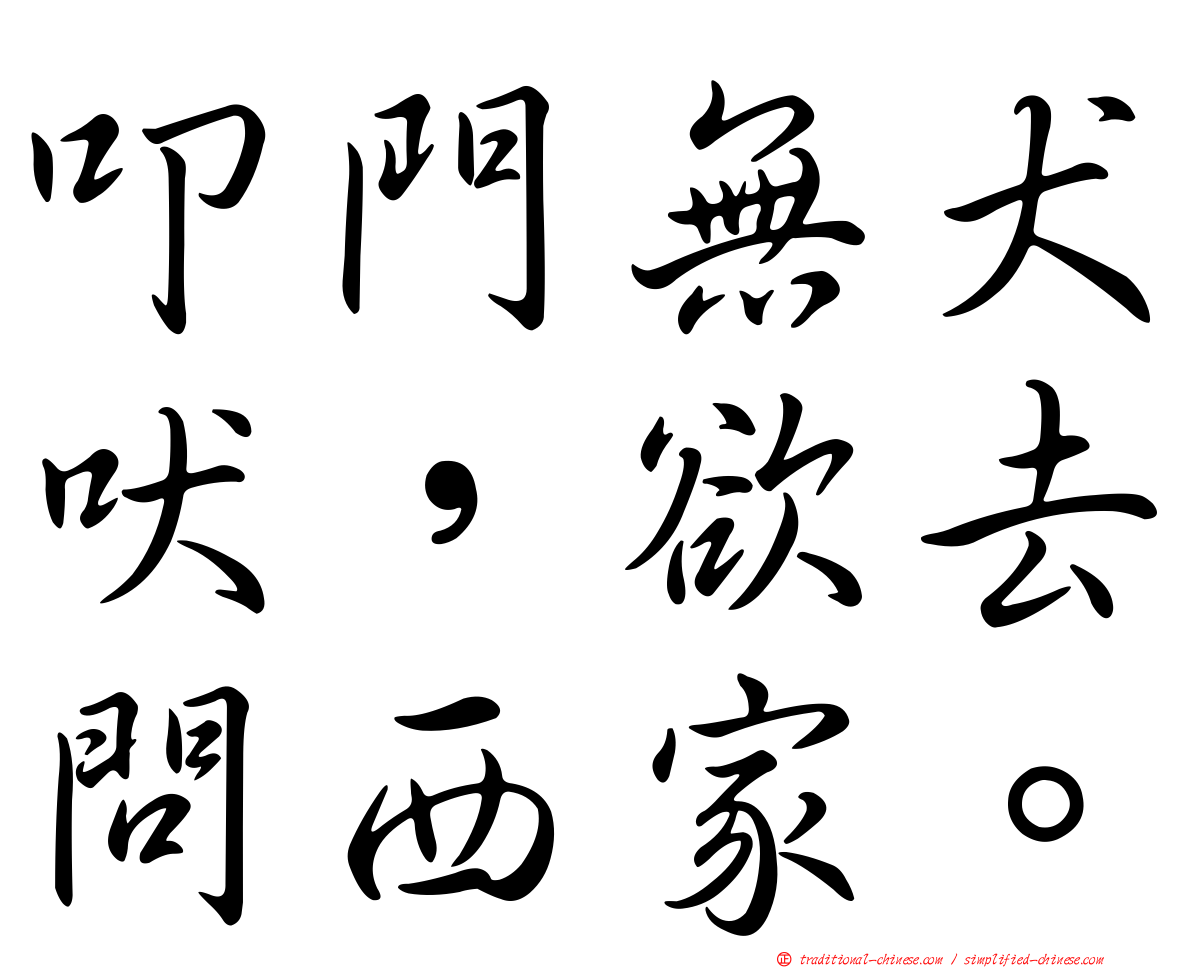 叩門無犬
吠，欲去
問西家。
正 traditional-chinese.com / simplified-chinese.com